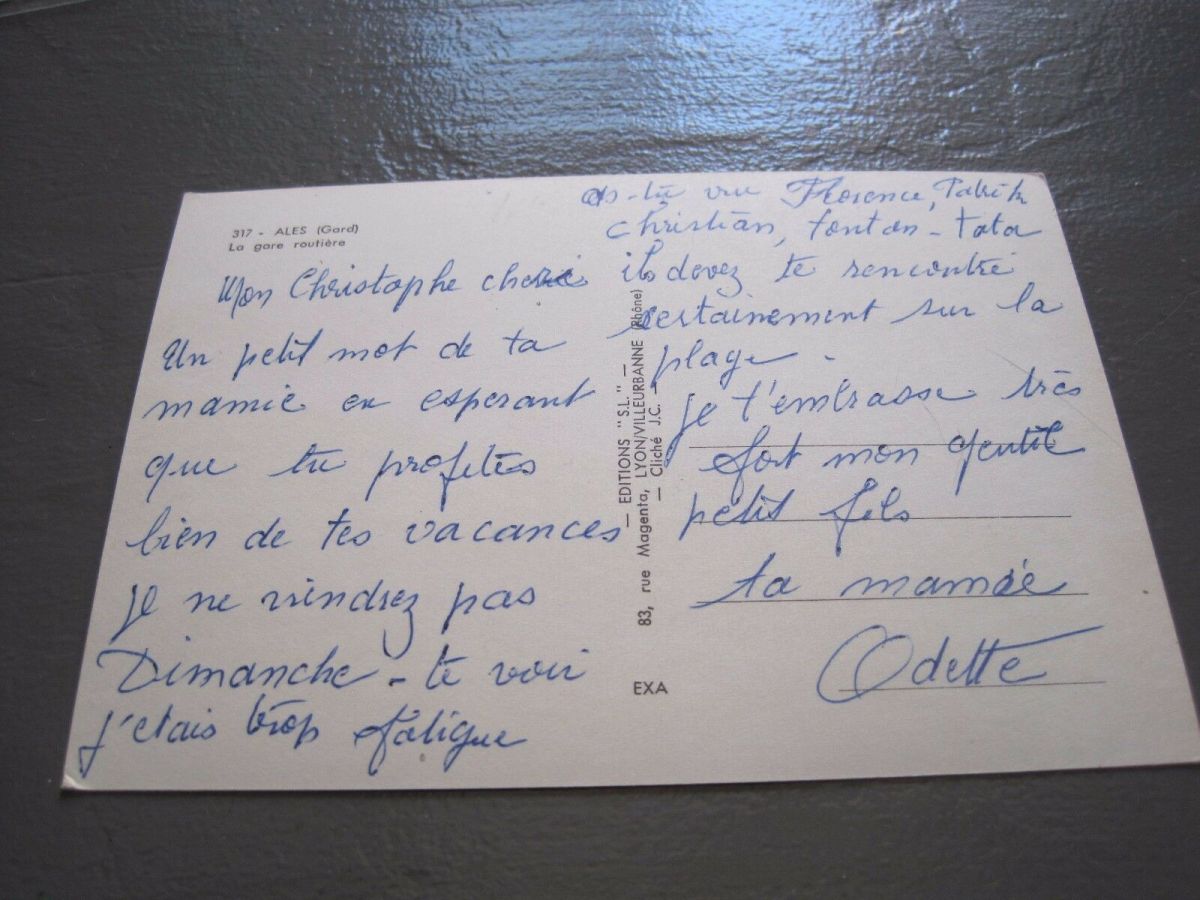 317 - ALES (Gard)
La gare routière
Mon Christophe cherie
Un petit mot de ta
mamie en esperant
que tu profites
bien de tes vacances
je ne viendrez pas
Dimanche - te voir
j'etais trop fatigue
— EDITIONS "S.L." —
83, rue Magenta, LYON/VILLEURBANNE (Rhône)
— Cliché J.C. —
EXA
as-tu vu Florence, Patrik
Christian, tonton - tata
ils devez te rencontré
certainement sur la
plage -
je t'embrasse très
fort mon gentil
petit fils
ta mamée
Odette